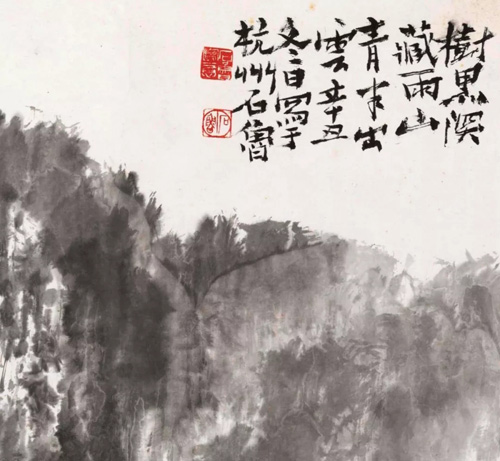 樹黑深
藏雨山
青半出
雲辛丑
冬日寫于
杭州石魯
石魯